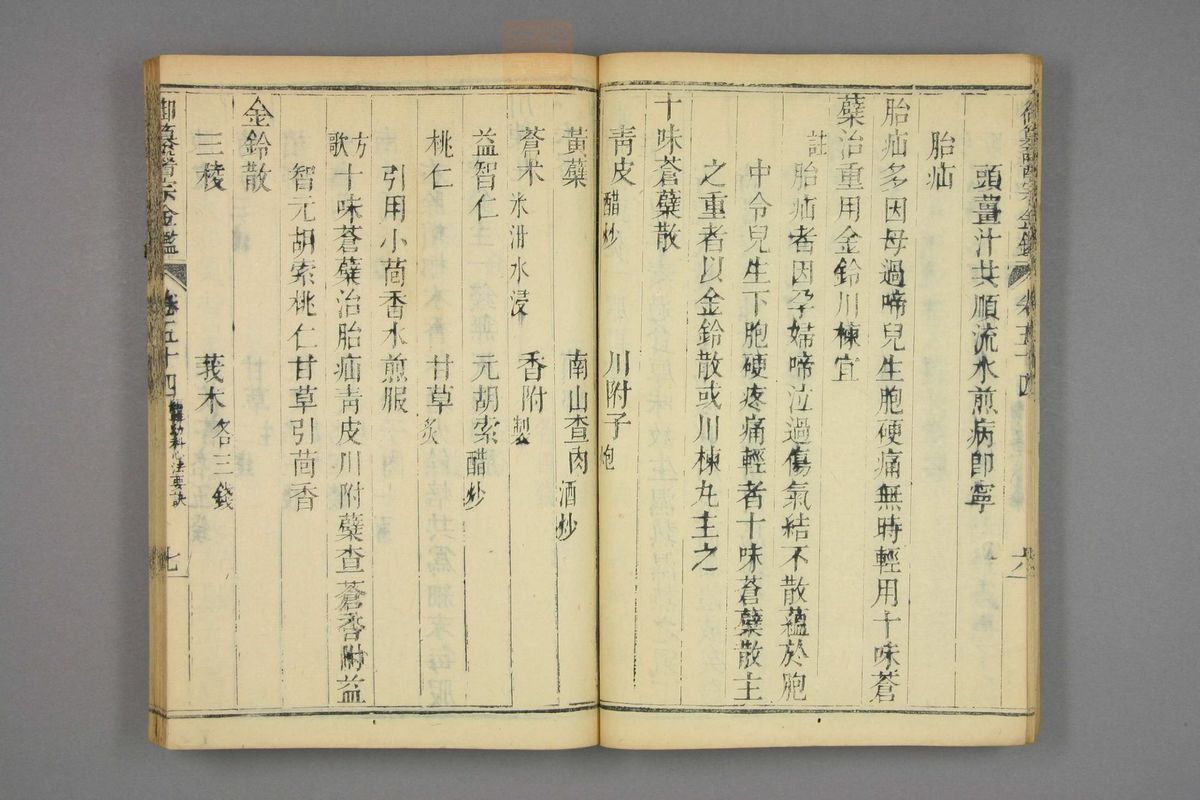 御纂醫宗金鑑 卷五十四 六
頭薑汁共順流水煎病即寧
胎疝
胎疝多因母過啼兒生胞硬痛無時輕用十味蒼
蘗治重用金鈴川楝宜
註胎疝者因孕婦啼泣過傷氣結不散蘊於胞
中令兒生下胞硬疼痛輕者十味蒼蘗散主
之重者以金鈴散或川楝丸主之
十味蒼蘗散
青皮醋炒 川附子炮
黃蘗 南山查肉酒炒
蒼朮米泔水浸 香附製
益智仁 元胡索醋炒
桃仁 甘草炙
引用小茴香水煎服
方歌十味蒼蘗治胎疝青皮川附蘗查蒼香附益
智元胡索桃仁甘草引茴香
金鈴散
三稜 莪朮各三錢
御纂醫宗金鑑 卷五十四 幼科心法要訣 七